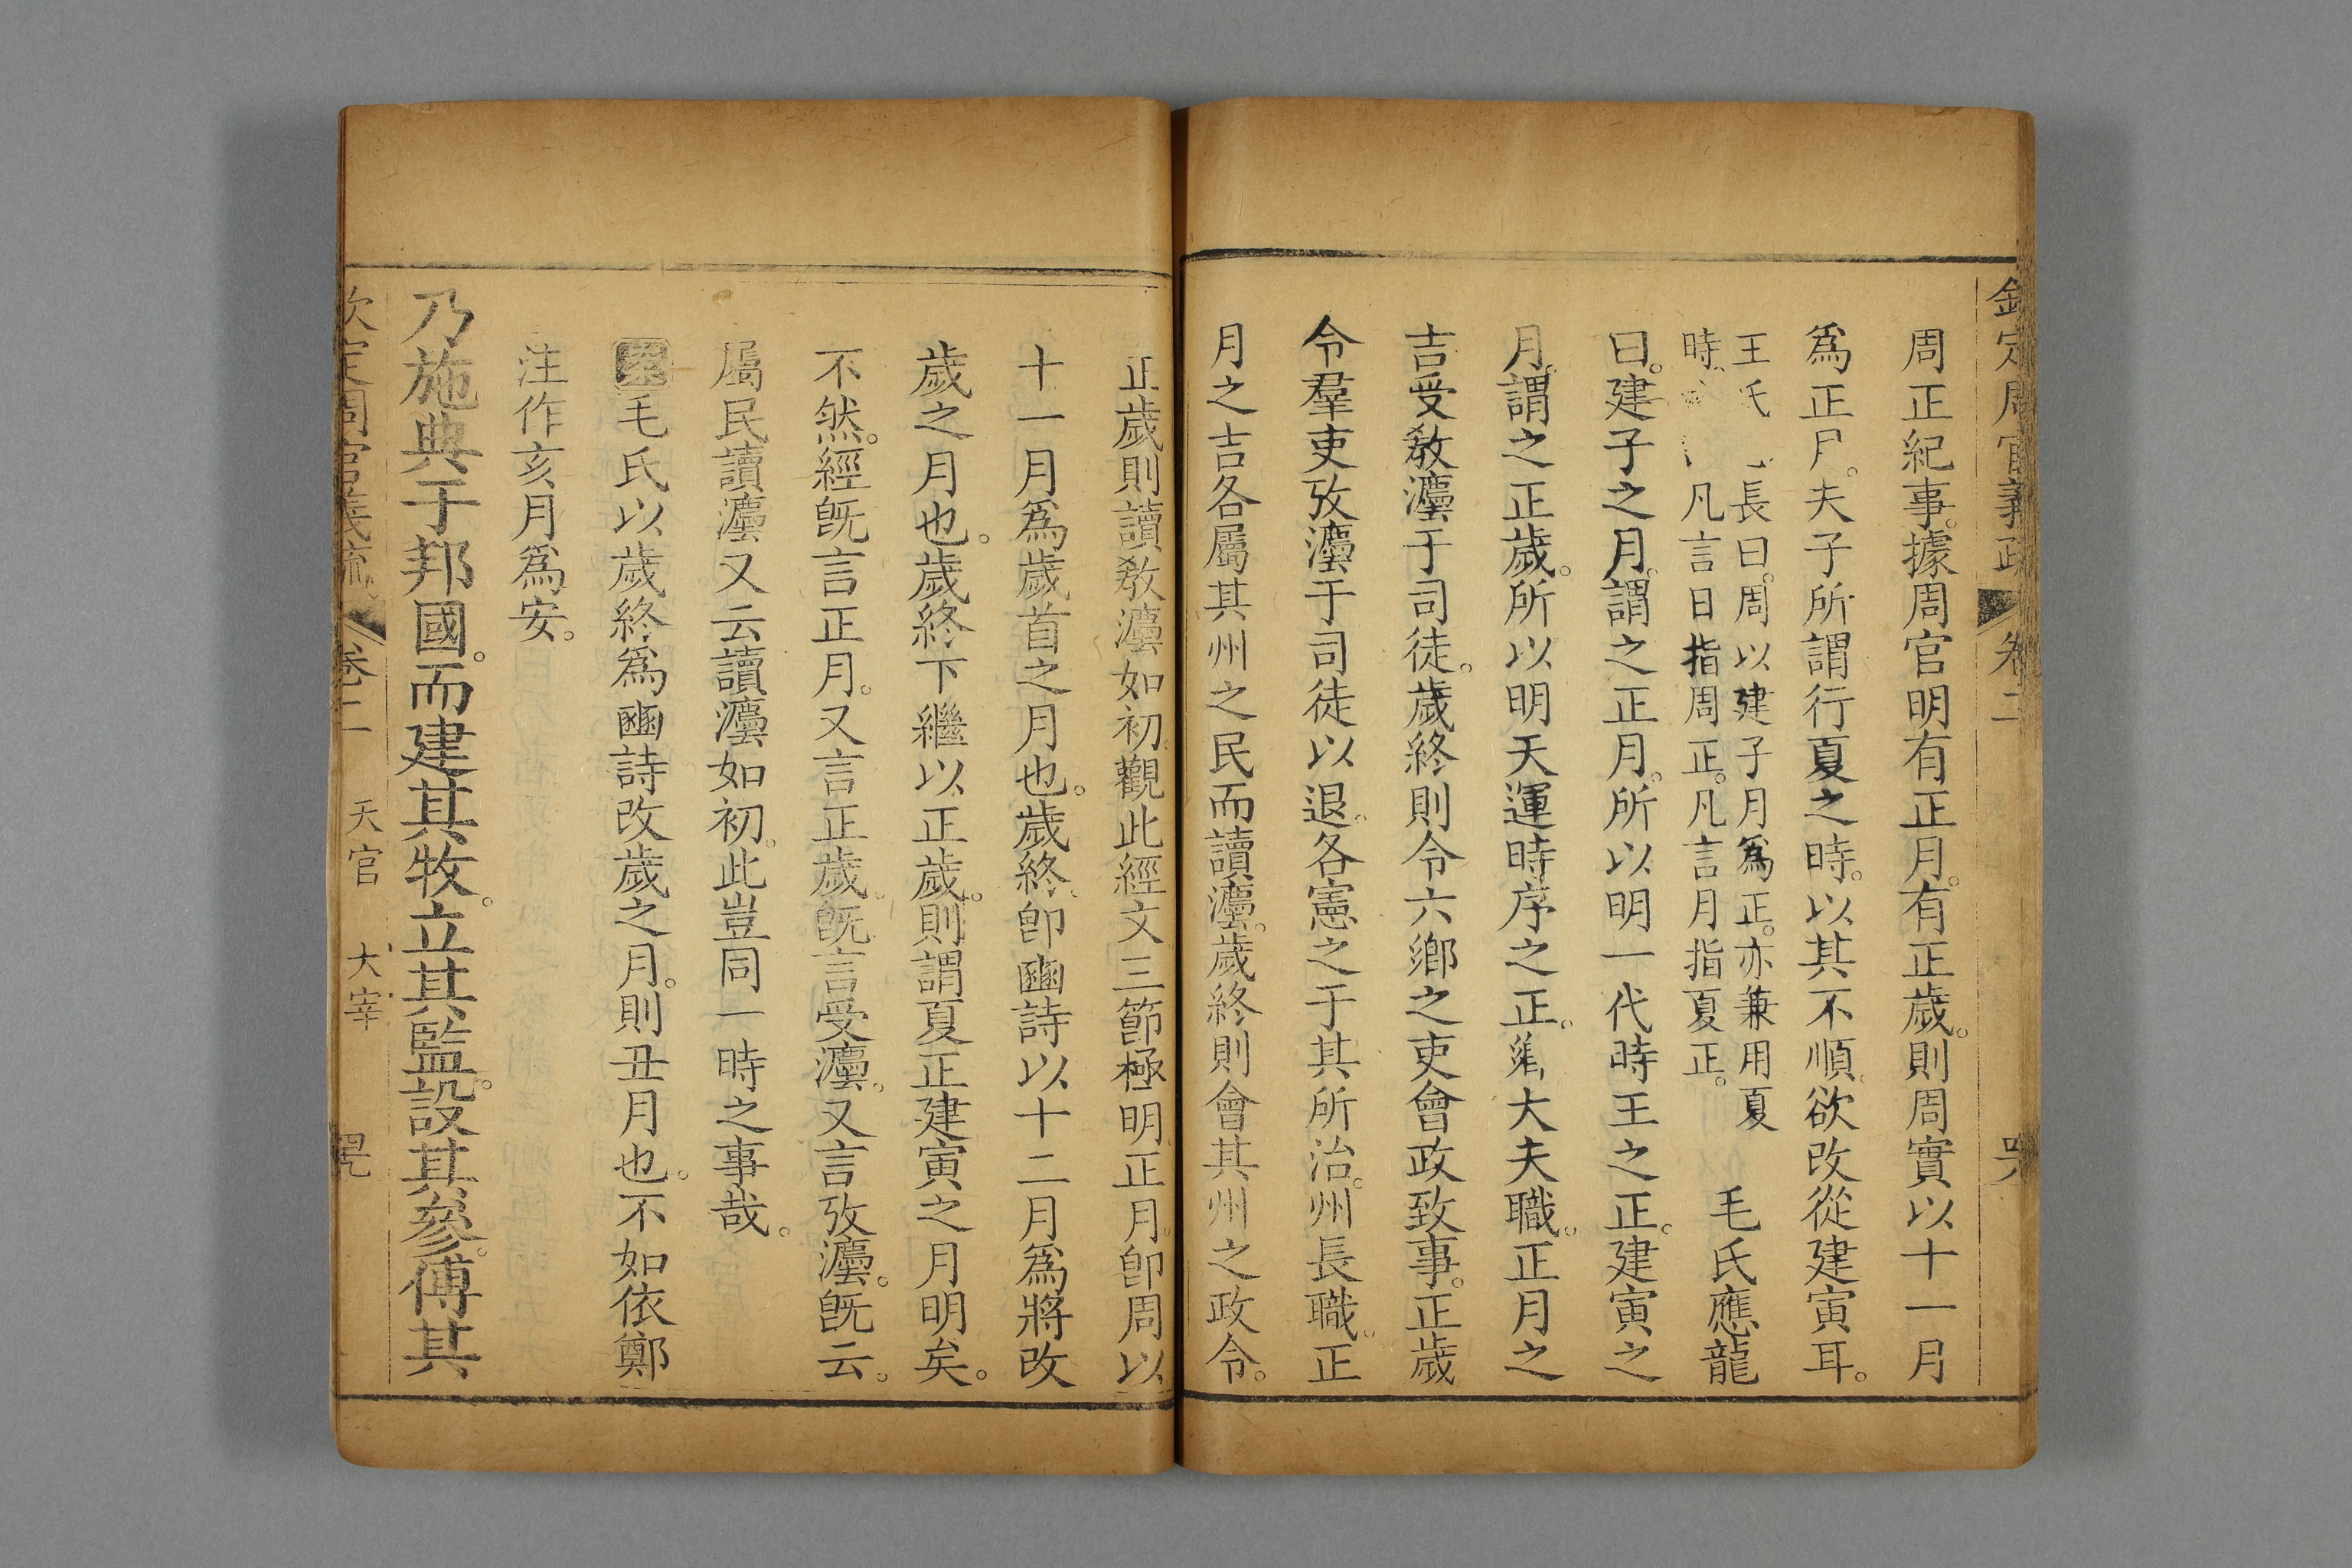 欽定周官義疏 卷二
周正紀事據周官明有正月有正歲則周實以十一月
爲正月夫子所謂行夏之時以其不順欲改從建寅耳
王氏 長曰周以建子月爲正亦兼用夏
時 凡言日指周正凡言月指夏正
毛氏應龍
曰建子之月謂之正月所以明一代時王之正建寅之
月謂之正歲所以明天運時序之正鄉大夫職正月之
吉受敎灋于司徒歲終則令六鄉之吏會政致事正歲
令羣吏攷灋于司徒以退各憲之于其所治州長職正
月之吉各屬其州之民而讀灋歲終則會其州之政令
正歲則讀敎灋如初觀此經文三節極明正月卽周以
十一月爲歲首之月也歲終卽豳詩以十二月爲將改
歲之月也歲終下繼以正歲則謂夏正建寅之月明矣
不然經旣言正月又言正歲旣言受灋又言攷灋旣云
屬民讀灋又云讀灋如初此豈同一時之事哉
案毛氏以歲終爲豳詩改歲之月則丑月也不如依鄭
注作亥月爲安
乃施典于邦國而建其牧立其監設其參傅其
欽定周官義疏 卷二 天官 大宰